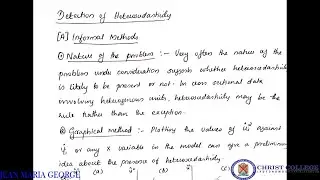 Detection of Heteroscedasticity
[A] Informal Methods
① Nature of the problem :- Very often the nature of the
problem under consideration suggests whether heteroscedasticity
is likely to be present or not. In cross sectional data
involving heterogenous units, heteroscedasticity may be the
rule rather than the exception.
② Graphical method :- Plotting the values of û² against
Ŷ or any X variable in the model can give a preliminary
idea about the presence of heteroscedasticity.
(a) (b) (c) (d)
JEAN MARIA GEORGE
CHRIST COLLEGE